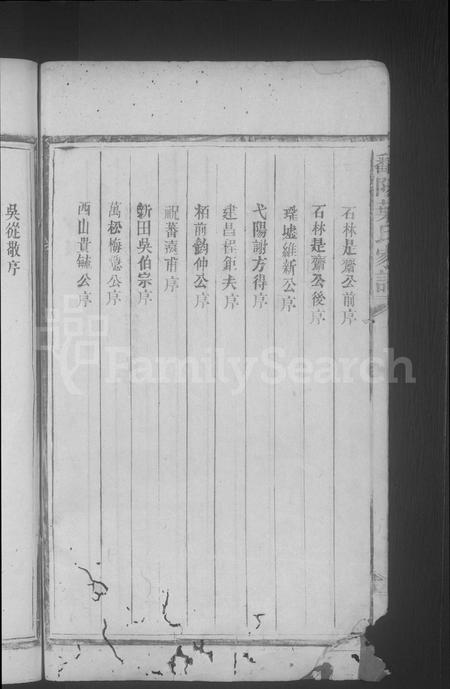 石林是齋公前序
石林是齋公後序
瑤墟維新公序
弋陽謝方得序
建昌程鉅夫序
栢前鈞仲公序
祝蕃遠甫序
新田吳伯宗序
萬松梅公序
西山貴鏞公序
吳從敬序
FamilySearch